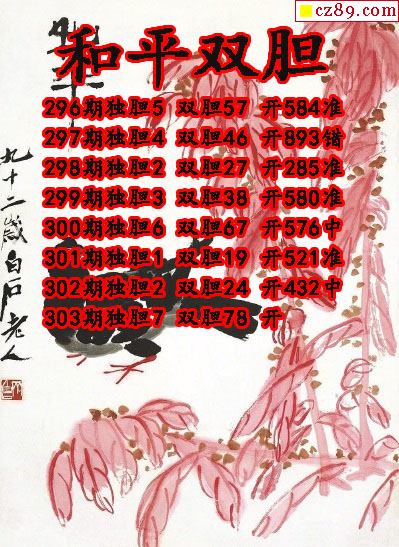 cz89.com
和平双胆
296期独胆5 双胆57 开584准
297期独胆4 双胆46 开893错
298期独胆2 双胆27 开285准
299期独胆3 双胆38 开580准
300期独胆6 双胆67 开576中
301期独胆1 双胆19 开521准
302期独胆2 双胆24 开432中
303期独胆7 双胆78 开
九十二岁白石老人